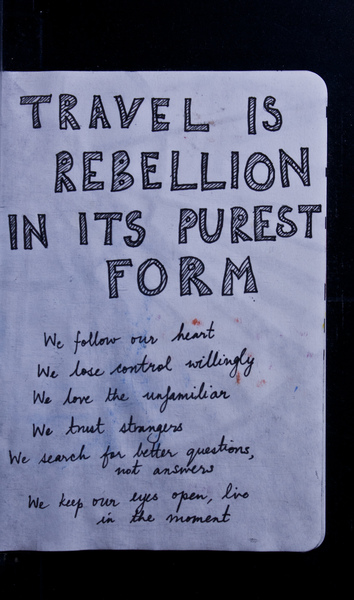 TRAVEL IS
REBELLION
IN ITS PUREST
FORM
We follow our heart
We lose control willingly
We love the unfamiliar
We trust strangers
We search for better questions,
not answers
We keep our eyes open, live
in the moment